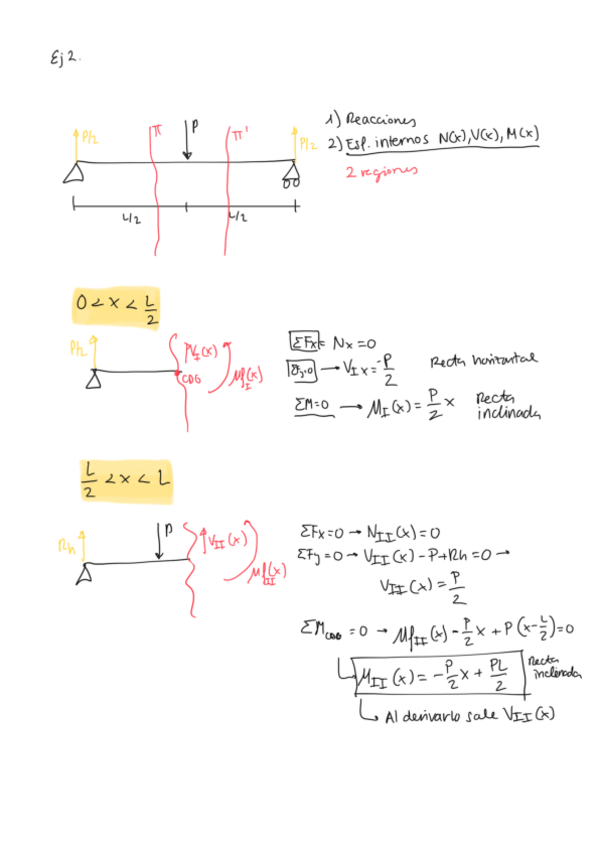 Ej 2.
1) Reacciones
P/2 π P π' P/2 2) Esf. internos N(x), V(x), M(x)
2 regiones
L/2 L/2
0 < x < L/2
P/2 V_I(x) COG Mf_I(x)
ΣFx = Nx = 0
→ V_I x = -P/2 Recta horizontal
ΣM=0 → M_I(x) = P/2 x Recta inclinada
L/2 < x < L
P V_II(x) Mf_II(x)
ΣFx=0 → N_II(x)=0
ΣFy=0 → V_II(x) - P + Rh = 0 →
V_II(x) = P/2
ΣM_COG = 0 → Mf_II(x) - P/2 x + P(x - L/2) = 0
M_II(x) = - P/2 x + PL/2 Recta inclinada
Al derivarlo sale V_II(x)